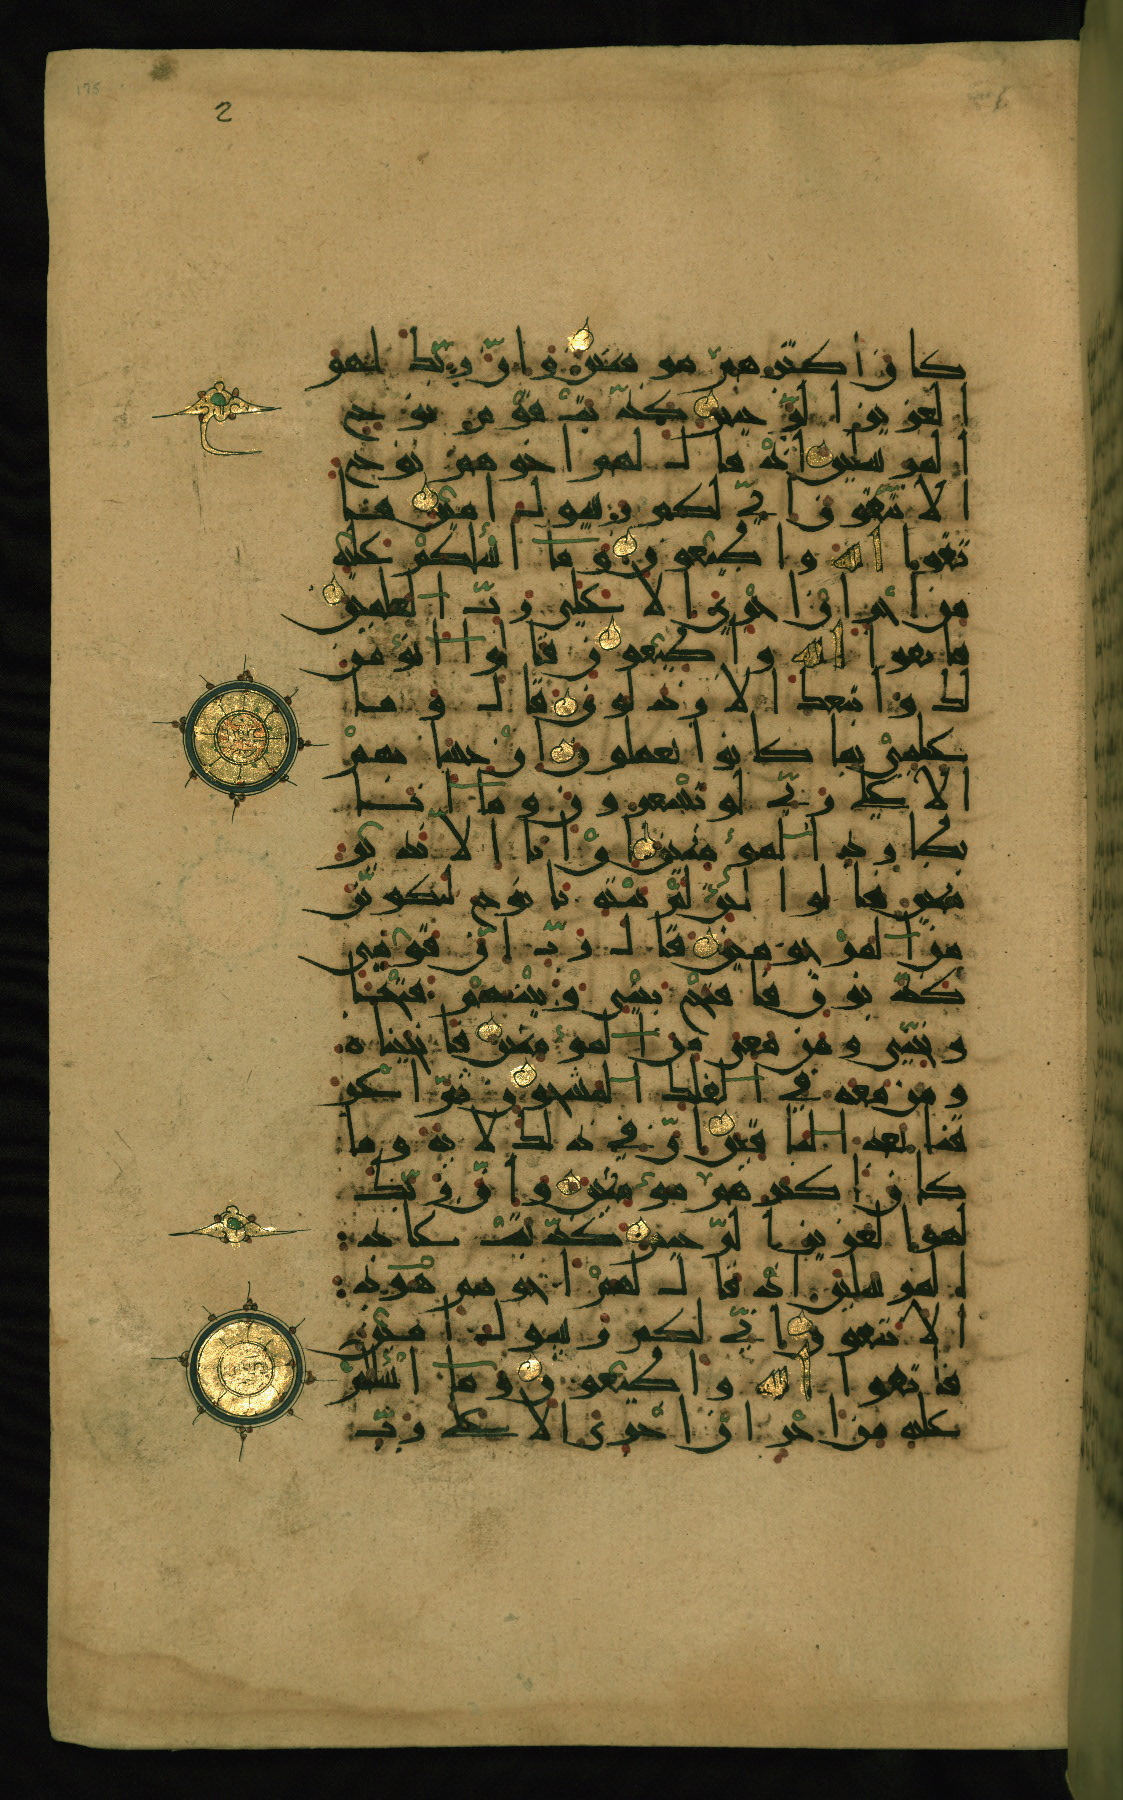 175
2
كان اكثرهم مومنين وان ربك لهو
العزيز الرحيم كذبت قوم نوح
المرسلين اذ قال لهم اخوهم نوح
الا تتقون اني لكم رسول امين فا
تقوا الله واطيعون وما اسئلكم عليه
من اجر ان اجري الا على رب العلمين
فاتقوا الله واطيعون قالوا انؤمن
لك واتبعك الارذلون قال وما
علمي بما كانوا يعملون ان حسابهم
الا على ربي لو تشعرون وما انا
بطارد المؤمنين ان انا الا نذير
مبين قالوا لئن لم تنته يا نوح لتكونن
من المرجومين قال رب ان قومي
كذبون فافتح بيني وبينهم فتحا
ونجني ومن معي من المؤمنين فانجيناه
ومن معه في الفلك المشحون ثم اغر
قنا بعد الباقين ان في ذلك لاية وما
كان اكثرهم مؤمنين وان ربك
لهو العزيز الرحيم كذبت عاد
المرسلين اذ قال لهم اخوهم هود
الا تتقون اني لكم رسول امين
فاتقوا الله واطيعون وما اسئلكم
عليه من اجر ان اجري الا على رب